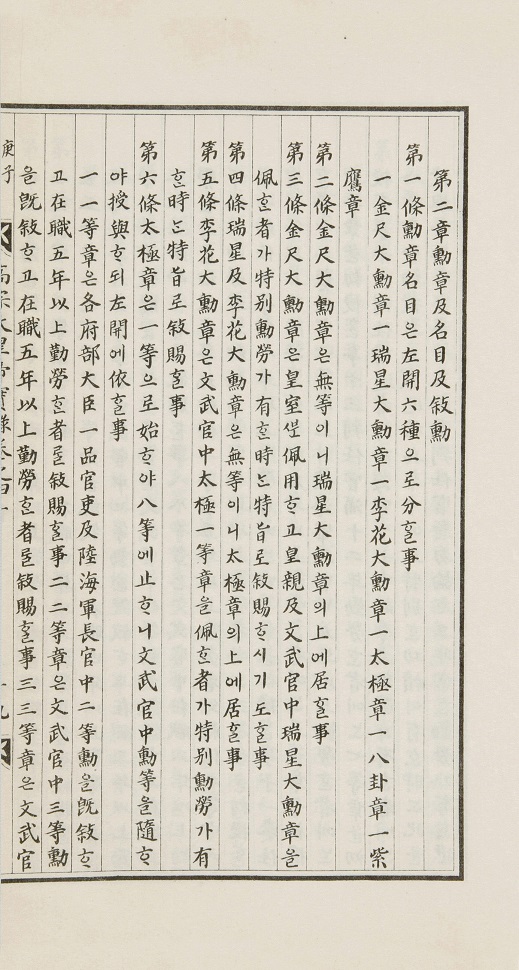 第二章勳章及名目及敍勳
第一條勳章名目은左開六種으로分ᄒᆞᆯ事
一金尺大勳章一瑞星大勳章一李花大勳章一太極章一八卦章一紫
鷹章
第二條金尺大勳章은無等이니瑞星大勳章의上에居ᄒᆞᆯ事
第三條金尺大勳章은皇室셔佩用ᄒᆞ고皇親及文武官中瑞星大勳章을
佩ᄒᆞᆫ者가特別勳勞가有ᄒᆞᆫ時ᄂᆞᆫ特旨로敍賜ᄒᆞ시기도ᄒᆞᆯ事
第四條瑞星及李花大勳章은無等이니太極章의上에居ᄒᆞᆯ事
第五條李花大勳章은文武官中太極一等章을佩ᄒᆞᆫ者가特別勳勞가有
ᄒᆞᆫ時ᄂᆞᆫ特旨로敍賜ᄒᆞᆯ事
第六條太極章은一等으로始ᄒᆞ야八等에止ᄒᆞ니文武官中勳等을隨ᄒᆞ
야授與ᄒᆞ되左開에依ᄒᆞᆯ事
一一等章은各府部大臣一品官吏及陸海軍長官中二等勳을旣敍ᄒᆞ
고在職五年以上勤勞ᄒᆞᆫ者를敍賜ᄒᆞᆯ事二二等章은文武官中三等勳
을旣敍ᄒᆞ고在職五年以上勤勞ᄒᆞᆫ者를敍賜ᄒᆞᆯ事三三等章은文武官
庚子